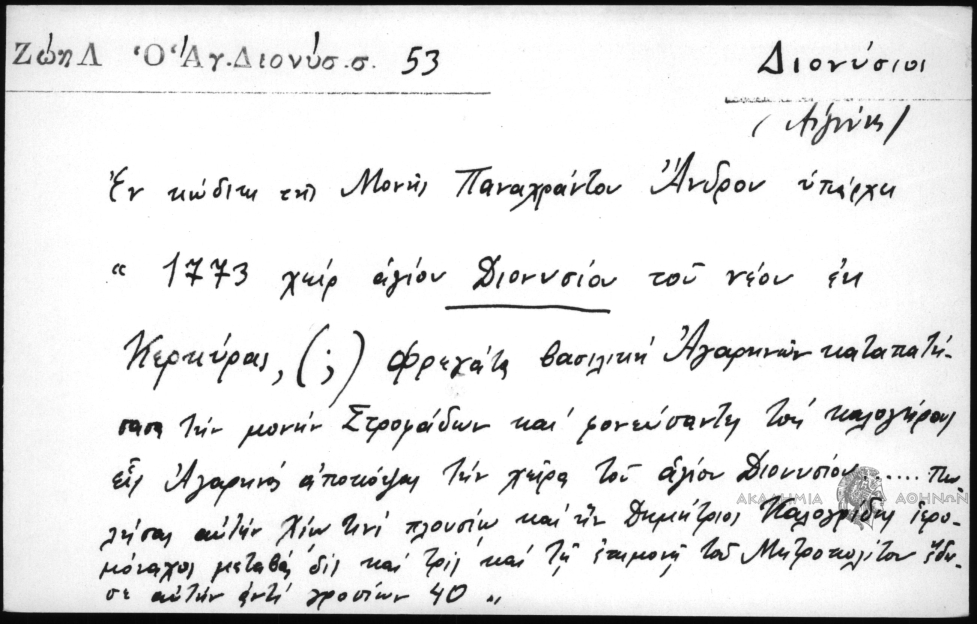 Ζώη Λ Ὁ Ἅγ. Διονύσ. σ. 53
Διονύσιοι
(Αἰγίνης)
Ἐν κώδικι τῆς Μονῆς Παναχράντου Ἄνδρου ὑπάρχει
" 1773 χείρ ἁγίου Διονυσίου τοῦ νέου ἐκ
Κερκύρας, (;) φρεγάτα βασιλική Ἀγαρηνῶν καταπατή-
σασα τήν μονήν Στροφάδων καί φονεύσαντες τούς καλογήρους
εἷς Ἀγαρηνός ἀποκόψας τήν χεῖρα τοῦ ἁγίου Διονυσίου...... πω
λήσας αὐτήν Χίῳ τινί πλουσίῳ καί Δημήτριος ἱερο-
μόναχος μεταβάς δίς καί τρίς καί τῇ ἐπιμονῇ τοῦ Μητροπολίτου ἔδω-
σε αὐτήν ἀντί γροσίων 40 "
ΑΚΑΔΗΜΙΑ ΑΘΗΝΩΝ